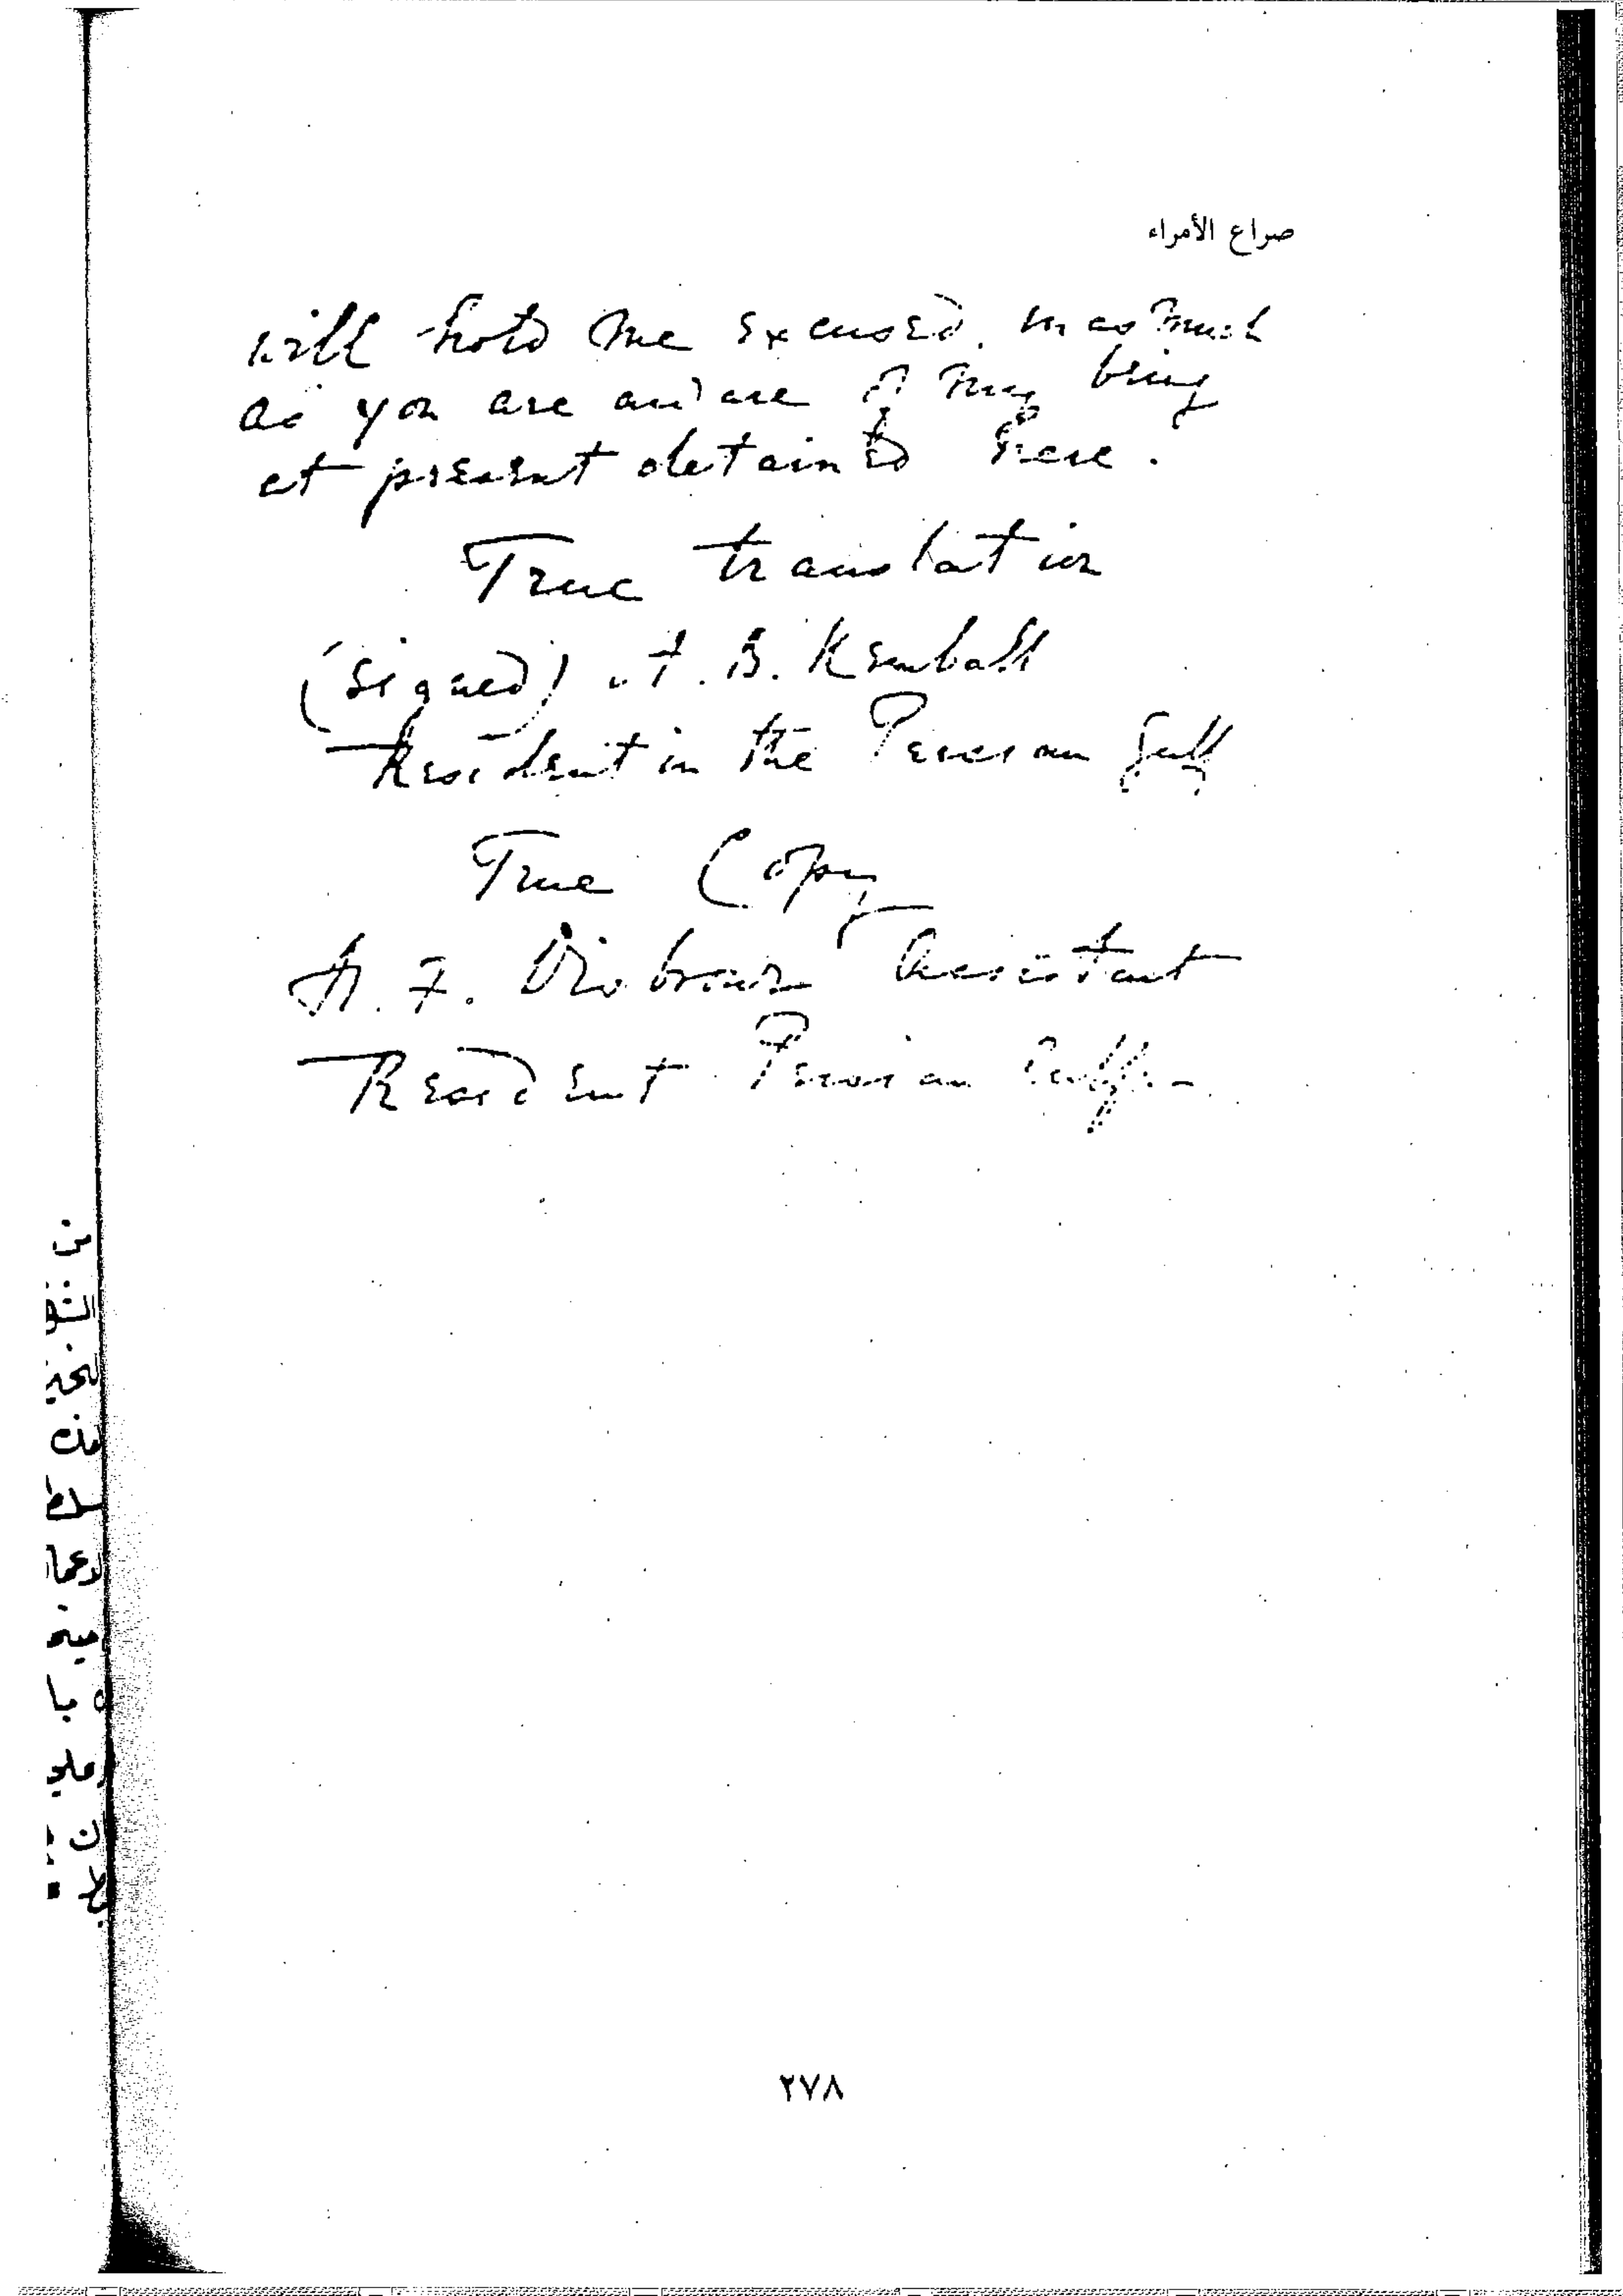 صراع الأمراء
will hold me excused, inasmuch
as you are aware of my being
at present detained here.
True translation
(signed) A. B. Kemball
Resident in the Persian Gulf
True Copy
H. F. Disbrowe Assistant
Resident Persian Gulf
٢٧٨